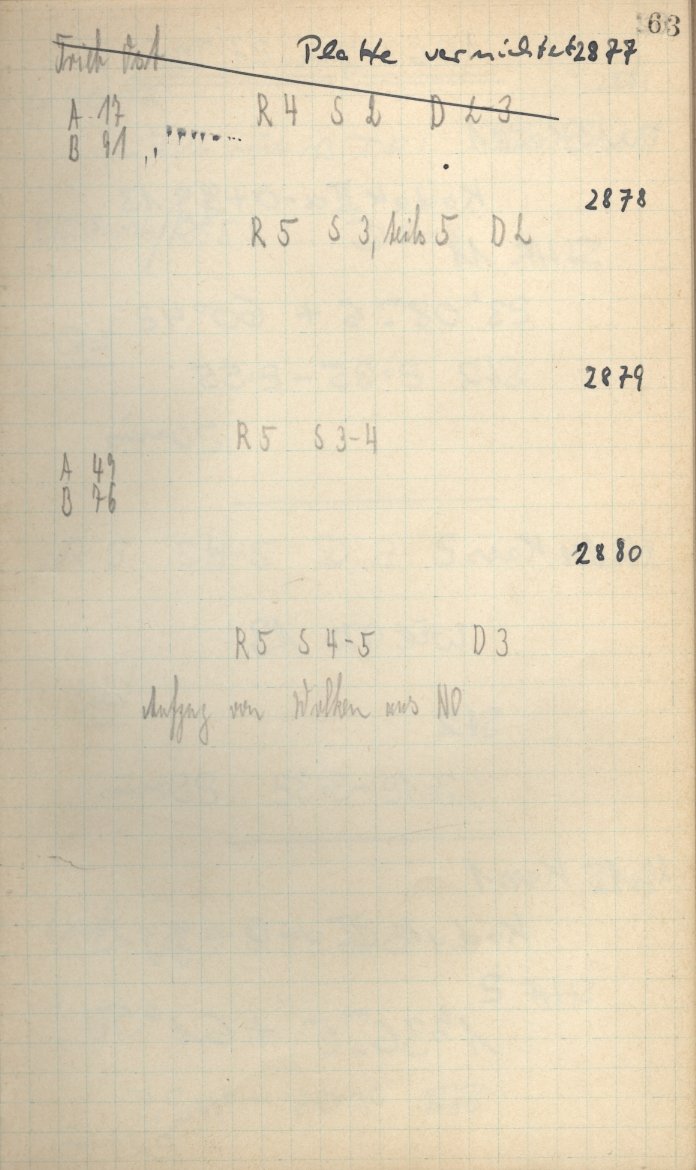 63
Platte vernichtet 2877
A 17 R 4 S 2 D 2-3
B 91
2878
R 5 S 3, teils 5 D 2
2879
R 5 S 3-4
A 49
B 76
2880
R 5 S 4-5 D 3
Aufzug von Wolken aus NO